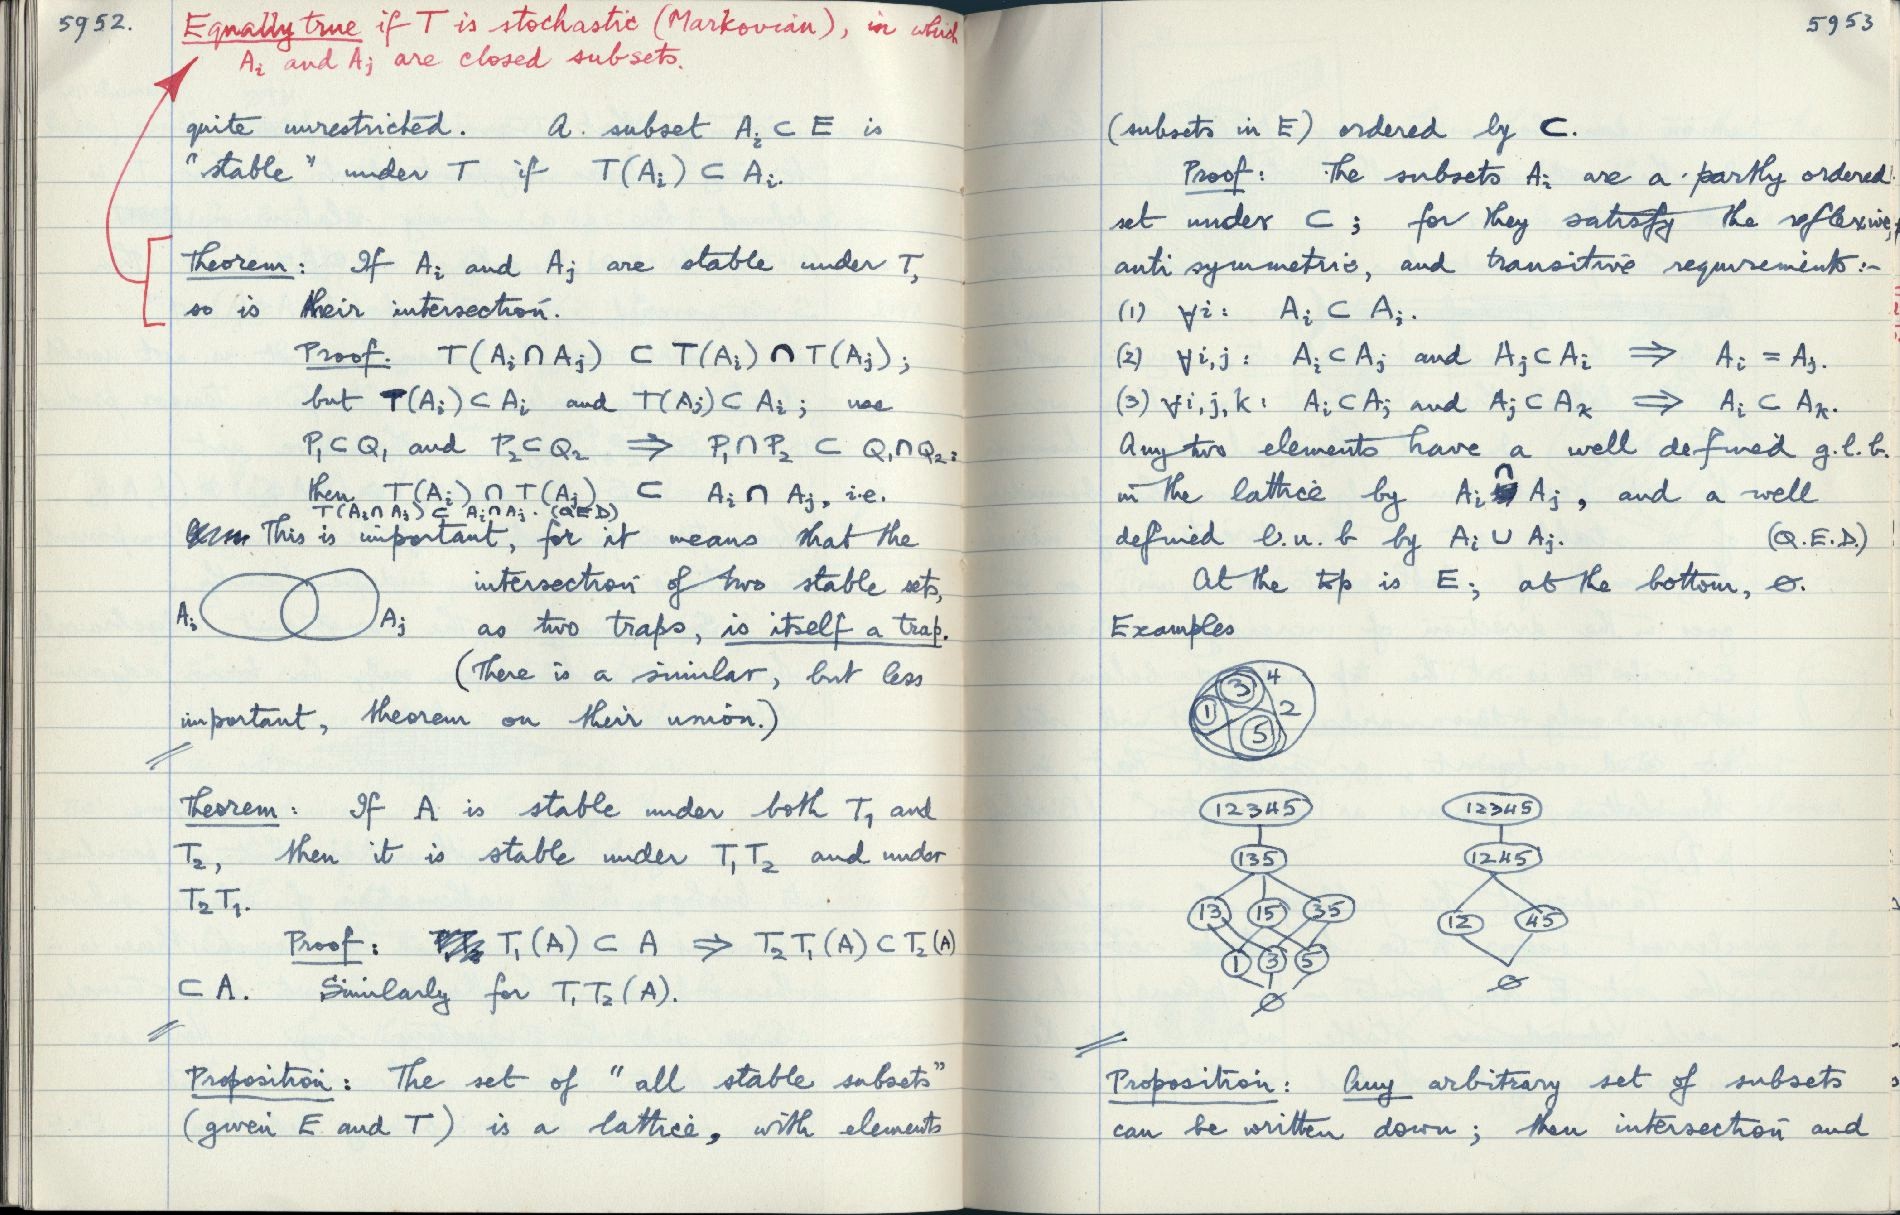 5952.
Equally true if T is stochastic (Markovian), in which
Ai and Aj are closed subsets.
quite unrestricted. A subset Ai ⊂ E is
"stable" under T if T(Ai) ⊂ Ai.
Theorem: If Ai and Aj are stable under T,
so is their intersection.
Proof: T(Ai ∩ Aj) ⊂ T(Ai) ∩ T(Aj);
but T(Ai) ⊂ Ai and T(Aj) ⊂ Aj; use
P1 ⊂ Q1 and P2 ⊂ Q2 ⟹ P1 ∩ P2 ⊂ Q1 ∩ Q2:
then T(Ai) ∩ T(Aj) ⊂ Ai ∩ Aj, i.e.
T(Ai ∩ Aj) ⊂ Ai ∩ Aj. (QED)
This is important, for it means that the
intersection of two stable sets,
Ai Aj as two traps, is itself a trap.
(There is a similar, but less
important, theorem on their union.)
Theorem: If A is stable under both T1 and
T2, then it is stable under T1T2 and under
T2T1.
Proof: T1(A) ⊂ A ⟹ T2T1(A) ⊂ T2(A)
⊂ A. Similarly for T1T2(A).
Proposition: The set of "all stable subsets"
(given E and T) is a lattice, with elements
5953
(subsets in E) ordered by ⊂.
Proof: The subsets Ai are a partly ordered
set under ⊂; for they satisfy the reflexive,
anti symmetric, and transitive requirements:-
(1) ∀i: Ai ⊂ Ai.
(2) ∀i,j: Ai ⊂ Aj and Aj ⊂ Ai ⟹ Ai = Aj.
(3) ∀i,j,k: Ai ⊂ Aj and Aj ⊂ Ak ⟹ Ai ⊂ Ak.
Any two elements have a well defined g.l.b.
in the lattice by Ai ∩ Aj, and a well
defined l.u.b by Ai ∪ Aj. (Q.E.D.)
At the top is E; at the bottom, ∅.
Examples
3 4
1 2
5
12345 12345
135 1245
13 15 35 12 45
1 3 5
∅ ∅
Proposition: Any arbitrary set of subsets
can be written down; then intersection and